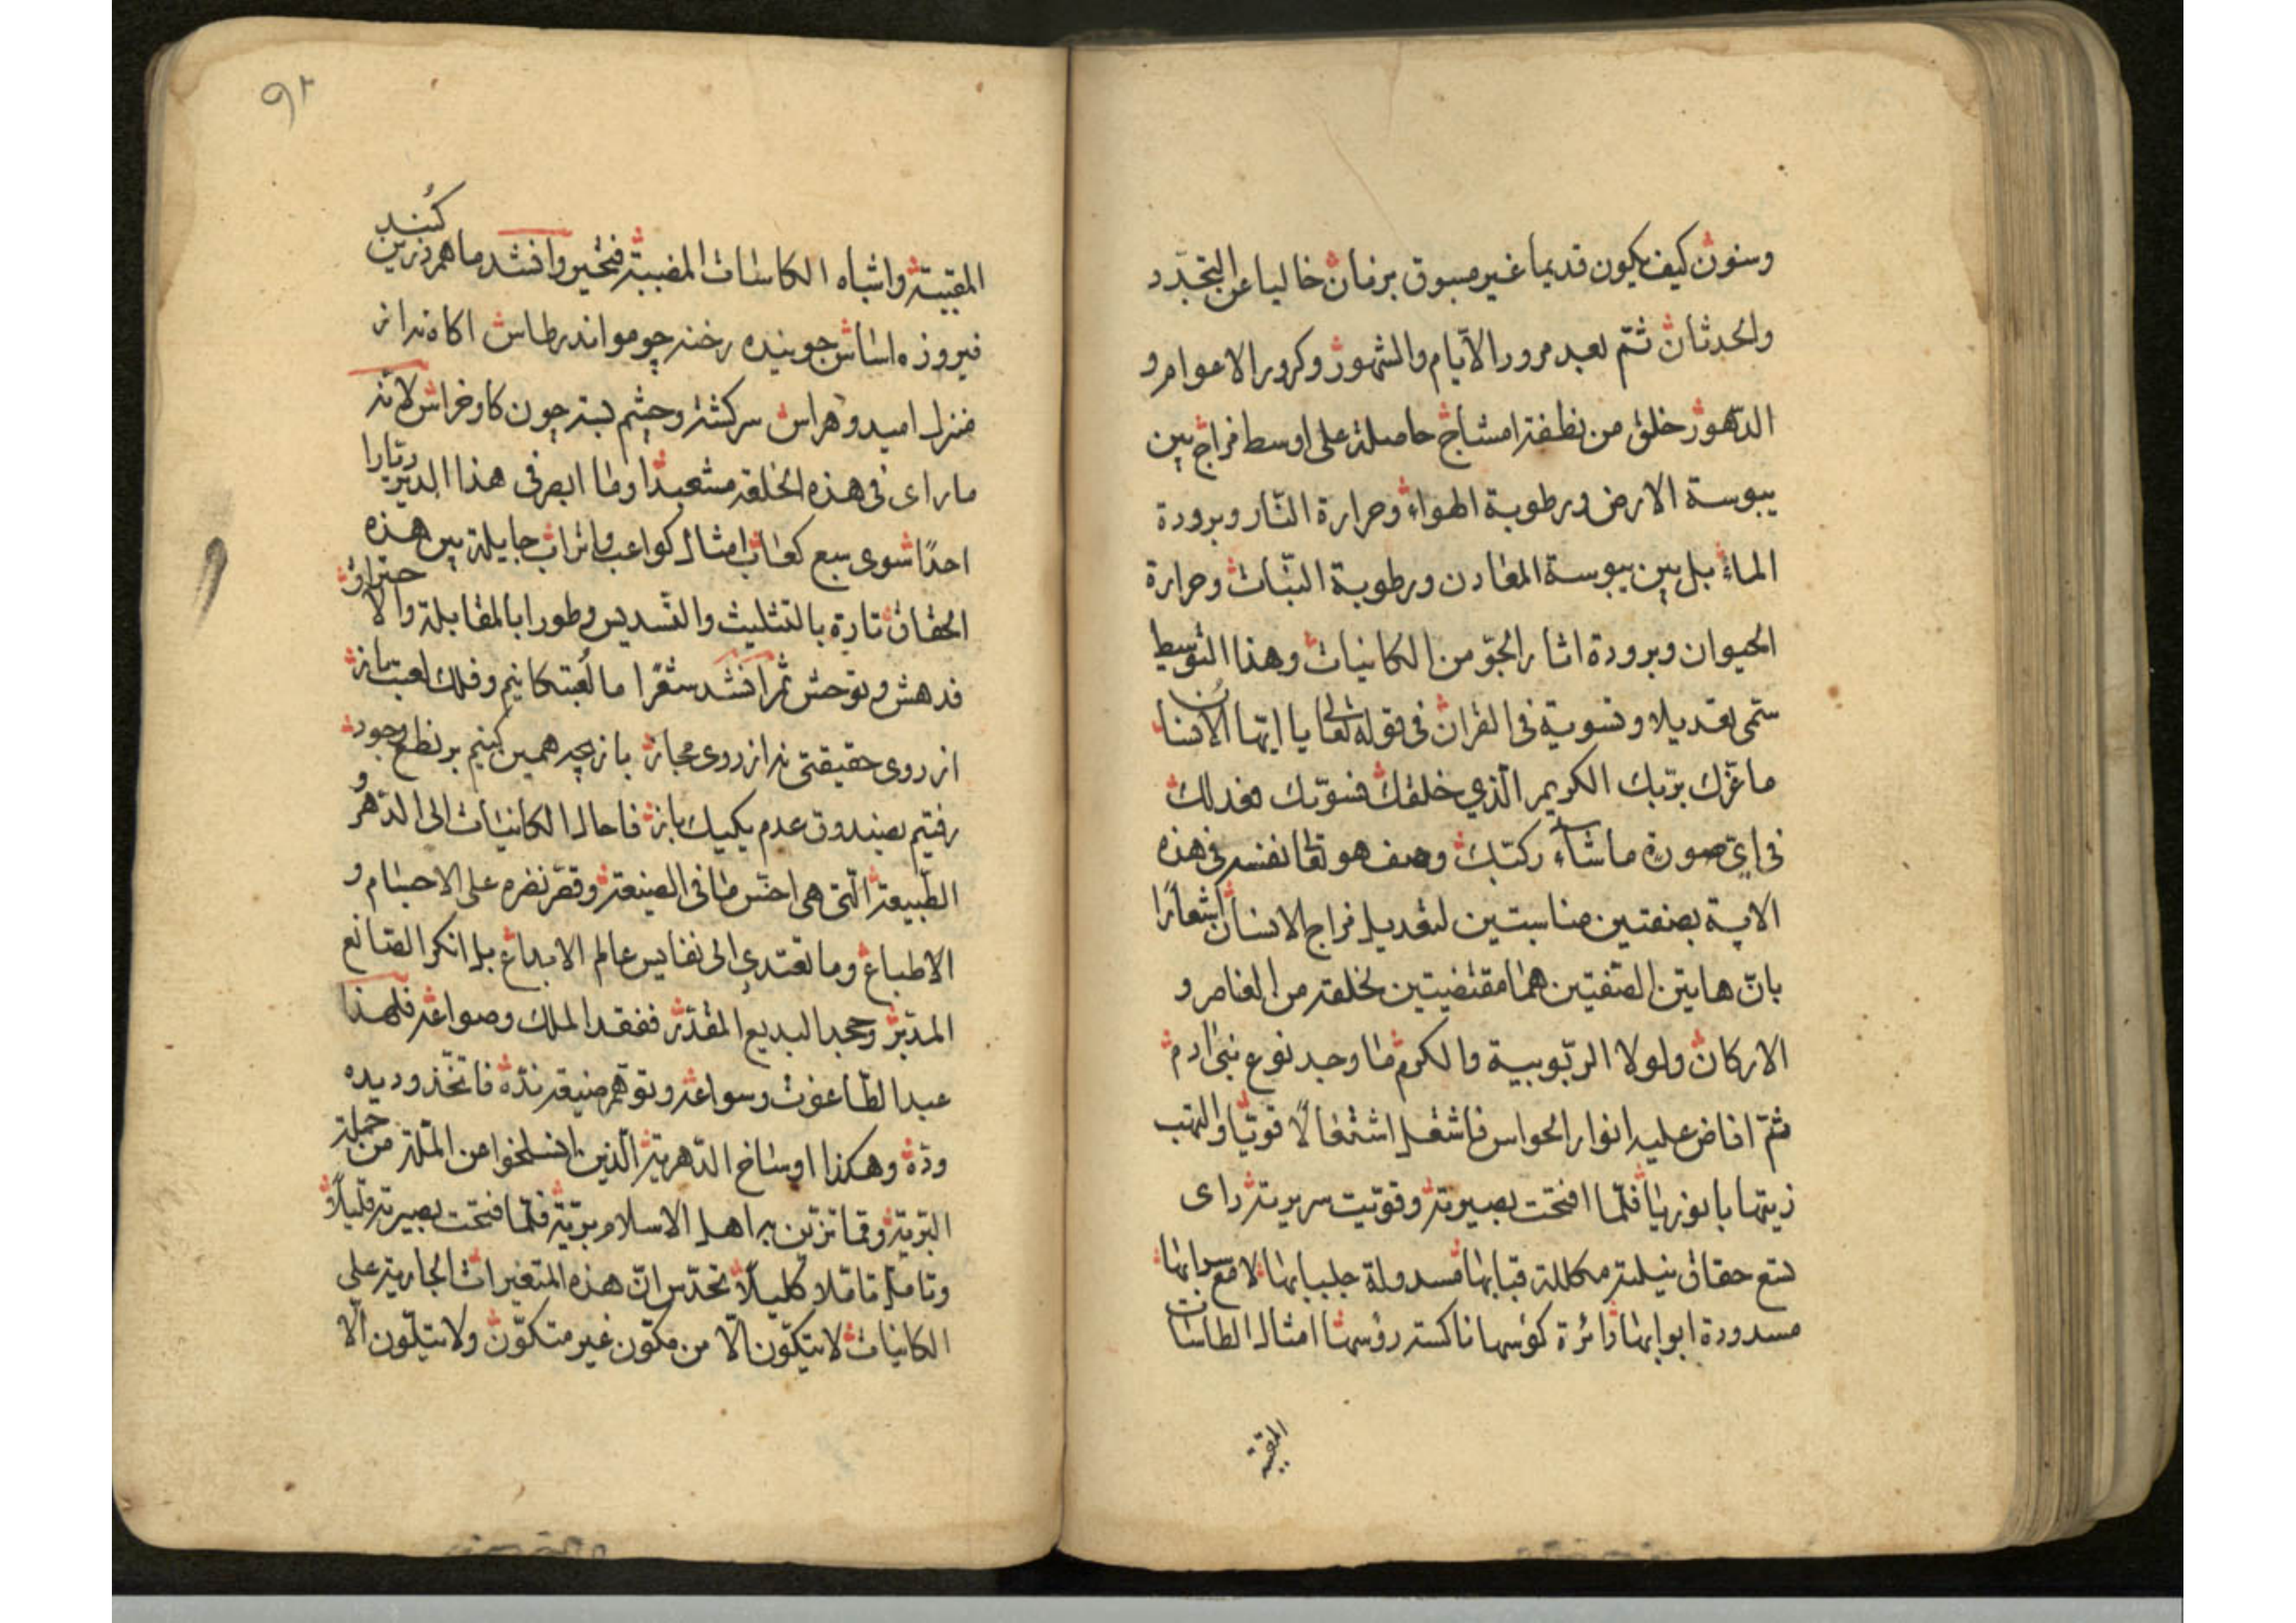 وسنون كيف يكون قديما غير مسبوق بزمان خاليا عن التجدد
والحدثان ثم بعد مرور الايام والشهور وكرور الاعوام و
الدهور خلق من نطفة امشاج حاصلة على اوسط مزاج بين
يبوسة الارض ورطوبة الهواء وحرارة النار وبرودة
الماء بل بين يبوسة المعادن ورطوبة النبات وحرارة
الحيوان وبرودة اثار الجو من الكائنات وهذا التوسيط
سمى تعديلا وتسوية فى القران فى قوله تعالى يا ايها الانسان
ما غرك بربك الكريم الذي خلقك فسويك فعدلك
فى اى صورة ما شاء ركبك وصف هو تعا نفسه فى هذه
الاية بصفتين مناسبتين لتعديل مزاج الانسان اشعارا
بان هاتين الصفتين هما مقتضيتين لخلقته من العناصر و
الاركان ولولا الربوبية والكرم ما وجد نوع بنى ادم
ثم افاض عليه انوار الحواس فاشتعل اشتعالا قويا والتهب
زيتها بانوريا فلما افتحت بصيرته وقويت سريرته راى
تسع حقاق نيلية مكللة قبابها مسدولة جلبابها لامع سرابها
مسدودة ابوابها دائرة كؤسها ناكسة رؤسها امثال الطاسات
المقببة
٩٢
المقببة واشباه الكاسات المضببة فتحير وانشد ما همه زرين كنيد
فيروزه اساس جوينده رخنه چو مو اندر طاس اكاه نه از
منزل اميد و هراس سركشته وچشم بسته چون كاو خراس لانه
ما راى فى هذه الخلقة مشعبدا وما ابصر فى هذا الدير ديارا
احدا سوى سبع كعاب امثال كواعب واتراب جايلة بين هذه
الحقاق تارة بالتثليث والتسديس وطورا بالمقابلة والاحتراق
فدهش وتوحش ثم انشد شعرا ما لعبتكانيم وفلك لعبت باز
از روى حقيقتى نه از روى مجاز بازيچه همين كنيم بر نطع وجود
رفتيم بصندوق عدم يكيك باز فاحال الكائنات الى الدهر و
الطبيعة التى هى اخس ما فى الصنيعة وقصر نظره على الاجسام و
الاطباع وما تعتدي الى نفايس عالم الابداع بل انكر الصانع
المدبر وجحد البديع المقدر ففقد الملك وصواعه فلهذا
عبد الطاغوت وسواعه وتوهم صنيعه نده فاتخذ وديده
وده وهكذا اوساخ الدهرية الذين انسلخوا عن الملة من جملة
البرية وقما تزين به اهل الاسلام برية فلما فتحت بصيرته قليلا و
وتامل تاملا كليلا تحدس ان هذه المتغيرات الجارية على
الكاينات لا يتكون الا من مكون غير متكون ولا يتلون الا